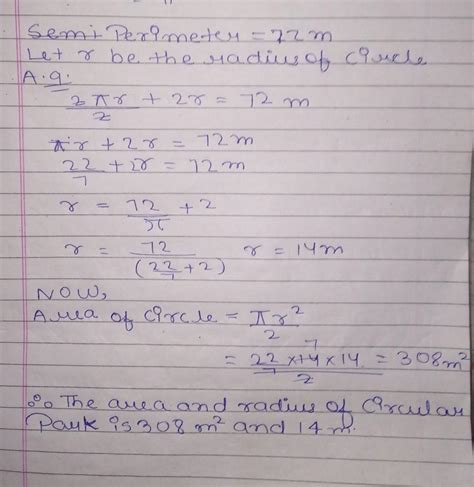 Semi Perimeter = 72 m
Let r be the radius of circle
A.q.
2πr/2 + 2r = 72 m
πr + 2r = 72m
22/7 + 2r = 72m
r = 72/π + 2
r = 72/(22/7 + 2) r = 14m
NOW,
Area of circle = πr²/2
= 22/7 × 14 × 14/2 = 308m²
∴ The area and radius of circular
Park is 308 m² and 14 m.